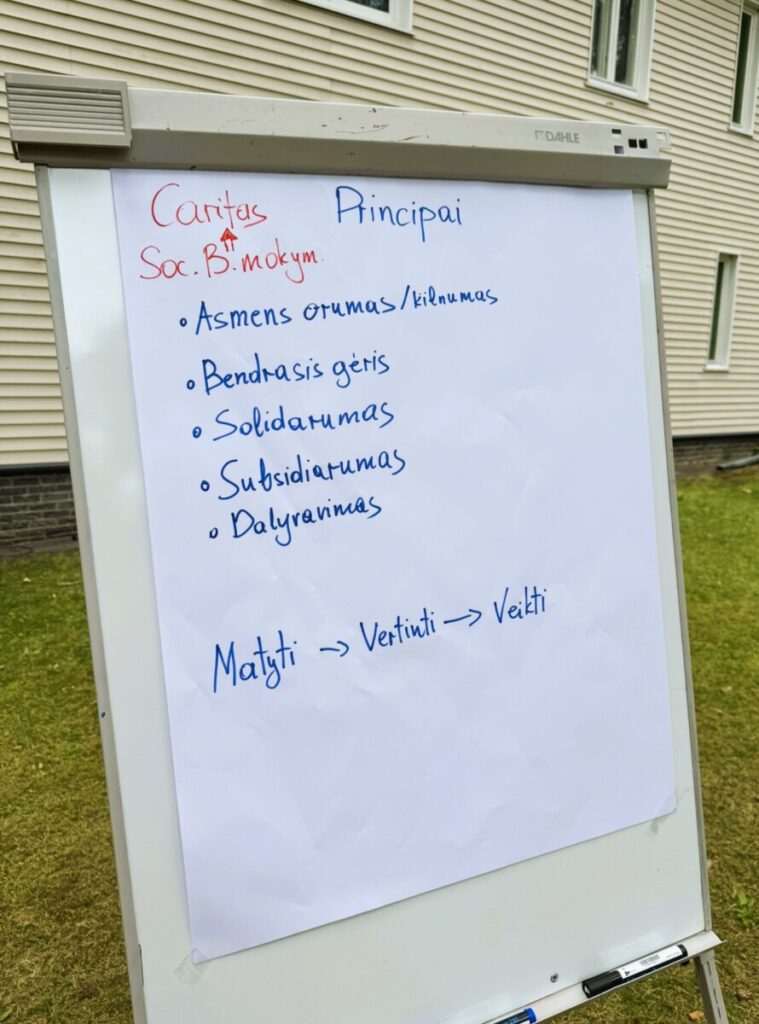 DAHLE
Caritas Principai
Soc. B. mokym.
Asmens orumas/kilnumas
Bendrasis gėris
Solidarumas
Subsidiarumas
Dalyvavimas
Matyti → Vertinti → Veikti